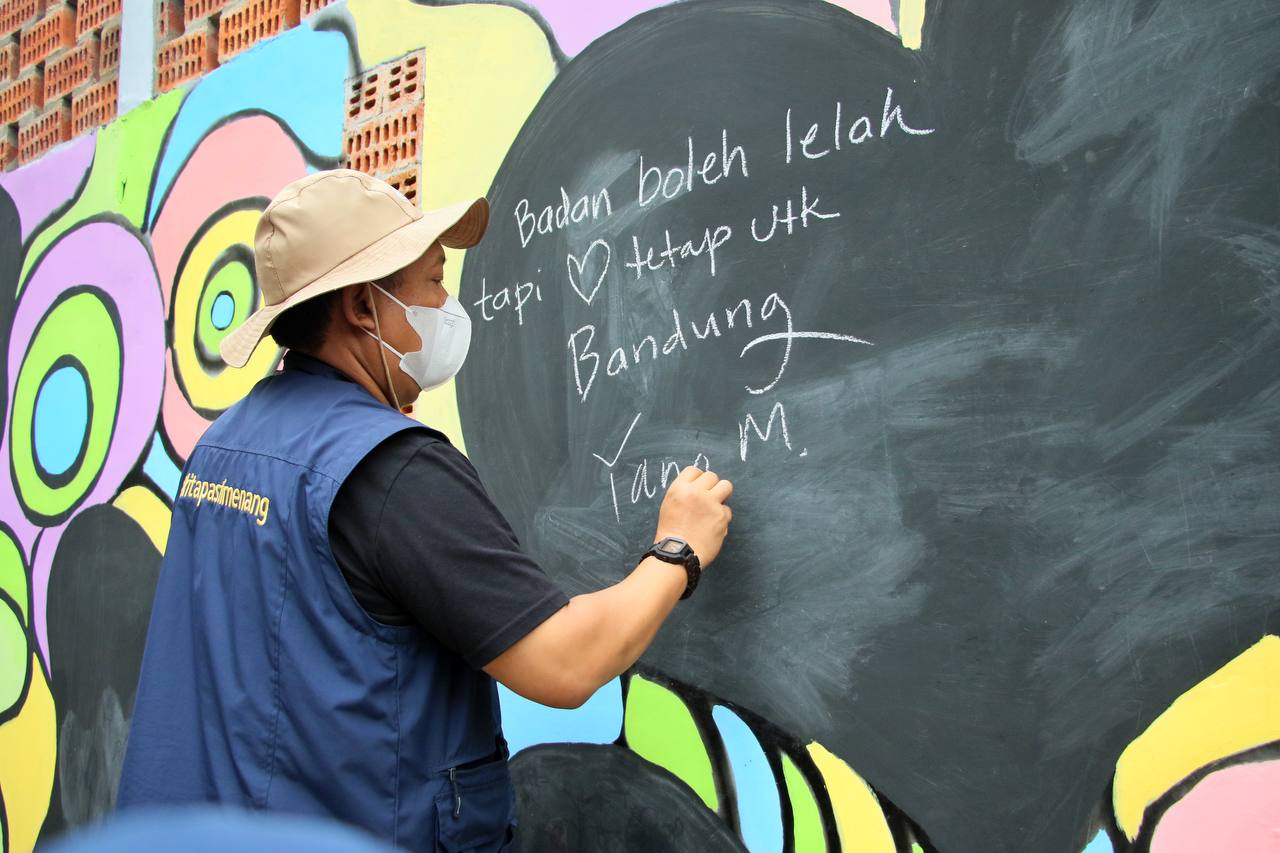 Badan boleh lelah
tapi ♡ tetap utk
Bandung
Yana M.
kitapastimenang